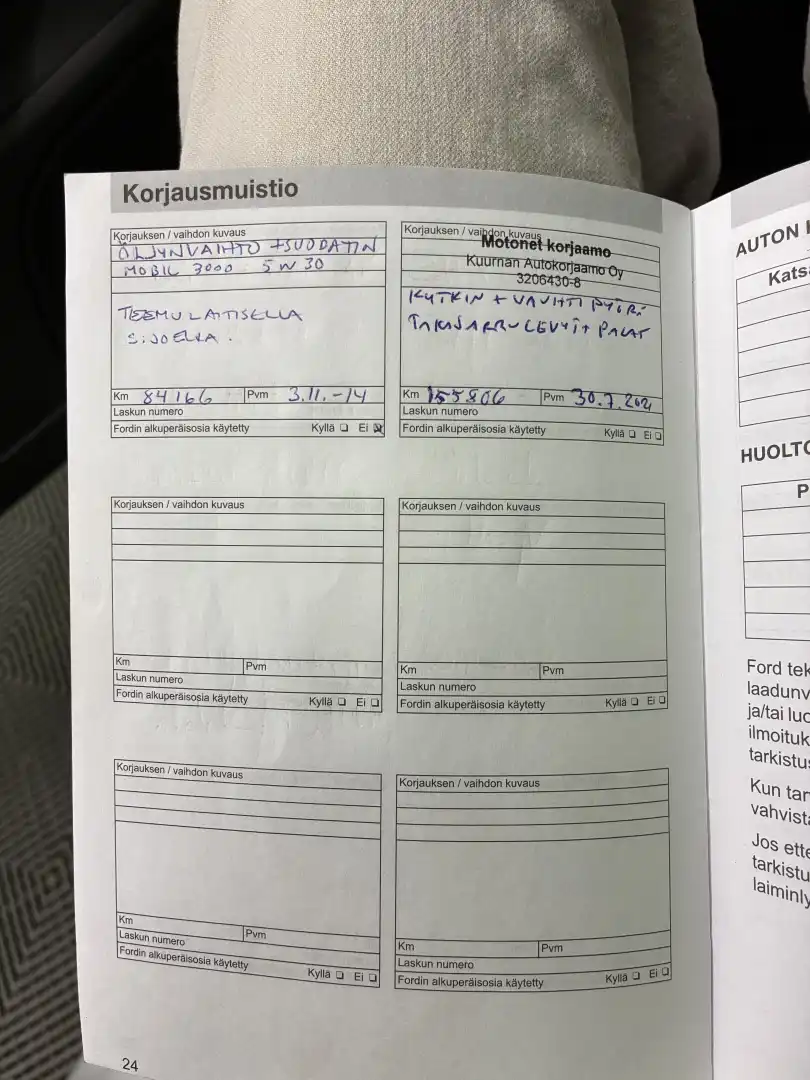 Korjausmuistio
Korjauksen / vaihdon kuvaus
ÖLJYNVAIHTO + SUODATIN
MOBIL 3000 5W30
TEEMU LAITISELLA
Km 84166 Pvm 3.11.-14
Laskun numero
Fordin alkuperäisosia käytetty Kyllä Ei
Korjauksen / vaihdon kuvaus
Motonet korjaamo
Kuurnan Autokorjaamo Oy
3206430-8
KYTKIN + VAUHTIPYÖRÄ
TAKAJARRULEVYT+PALAT
Km 155806 Pvm 30.7.2021
Laskun numero
Fordin alkuperäisosia käytetty Kyllä Ei
Korjauksen / vaihdon kuvaus
Km Pvm
Laskun numero
Fordin alkuperäisosia käytetty Kyllä Ei
Korjauksen / vaihdon kuvaus
Km Pvm
Laskun numero
Fordin alkuperäisosia käytetty Kyllä Ei
Korjauksen / vaihdon kuvaus
Km Pvm
Laskun numero
Fordin alkuperäisosia käytetty Kyllä Ei
Korjauksen / vaihdon kuvaus
Km Pvm
Laskun numero
Fordin alkuperäisosia käytetty Kyllä Ei
24
AUTON
Kats
HUOLTO
P
Ford tek
laadunv
ja/tai luo
ilmoituk
tarkistu
Kun tar
vahvista
Jos ette
tarkistu
laiminly